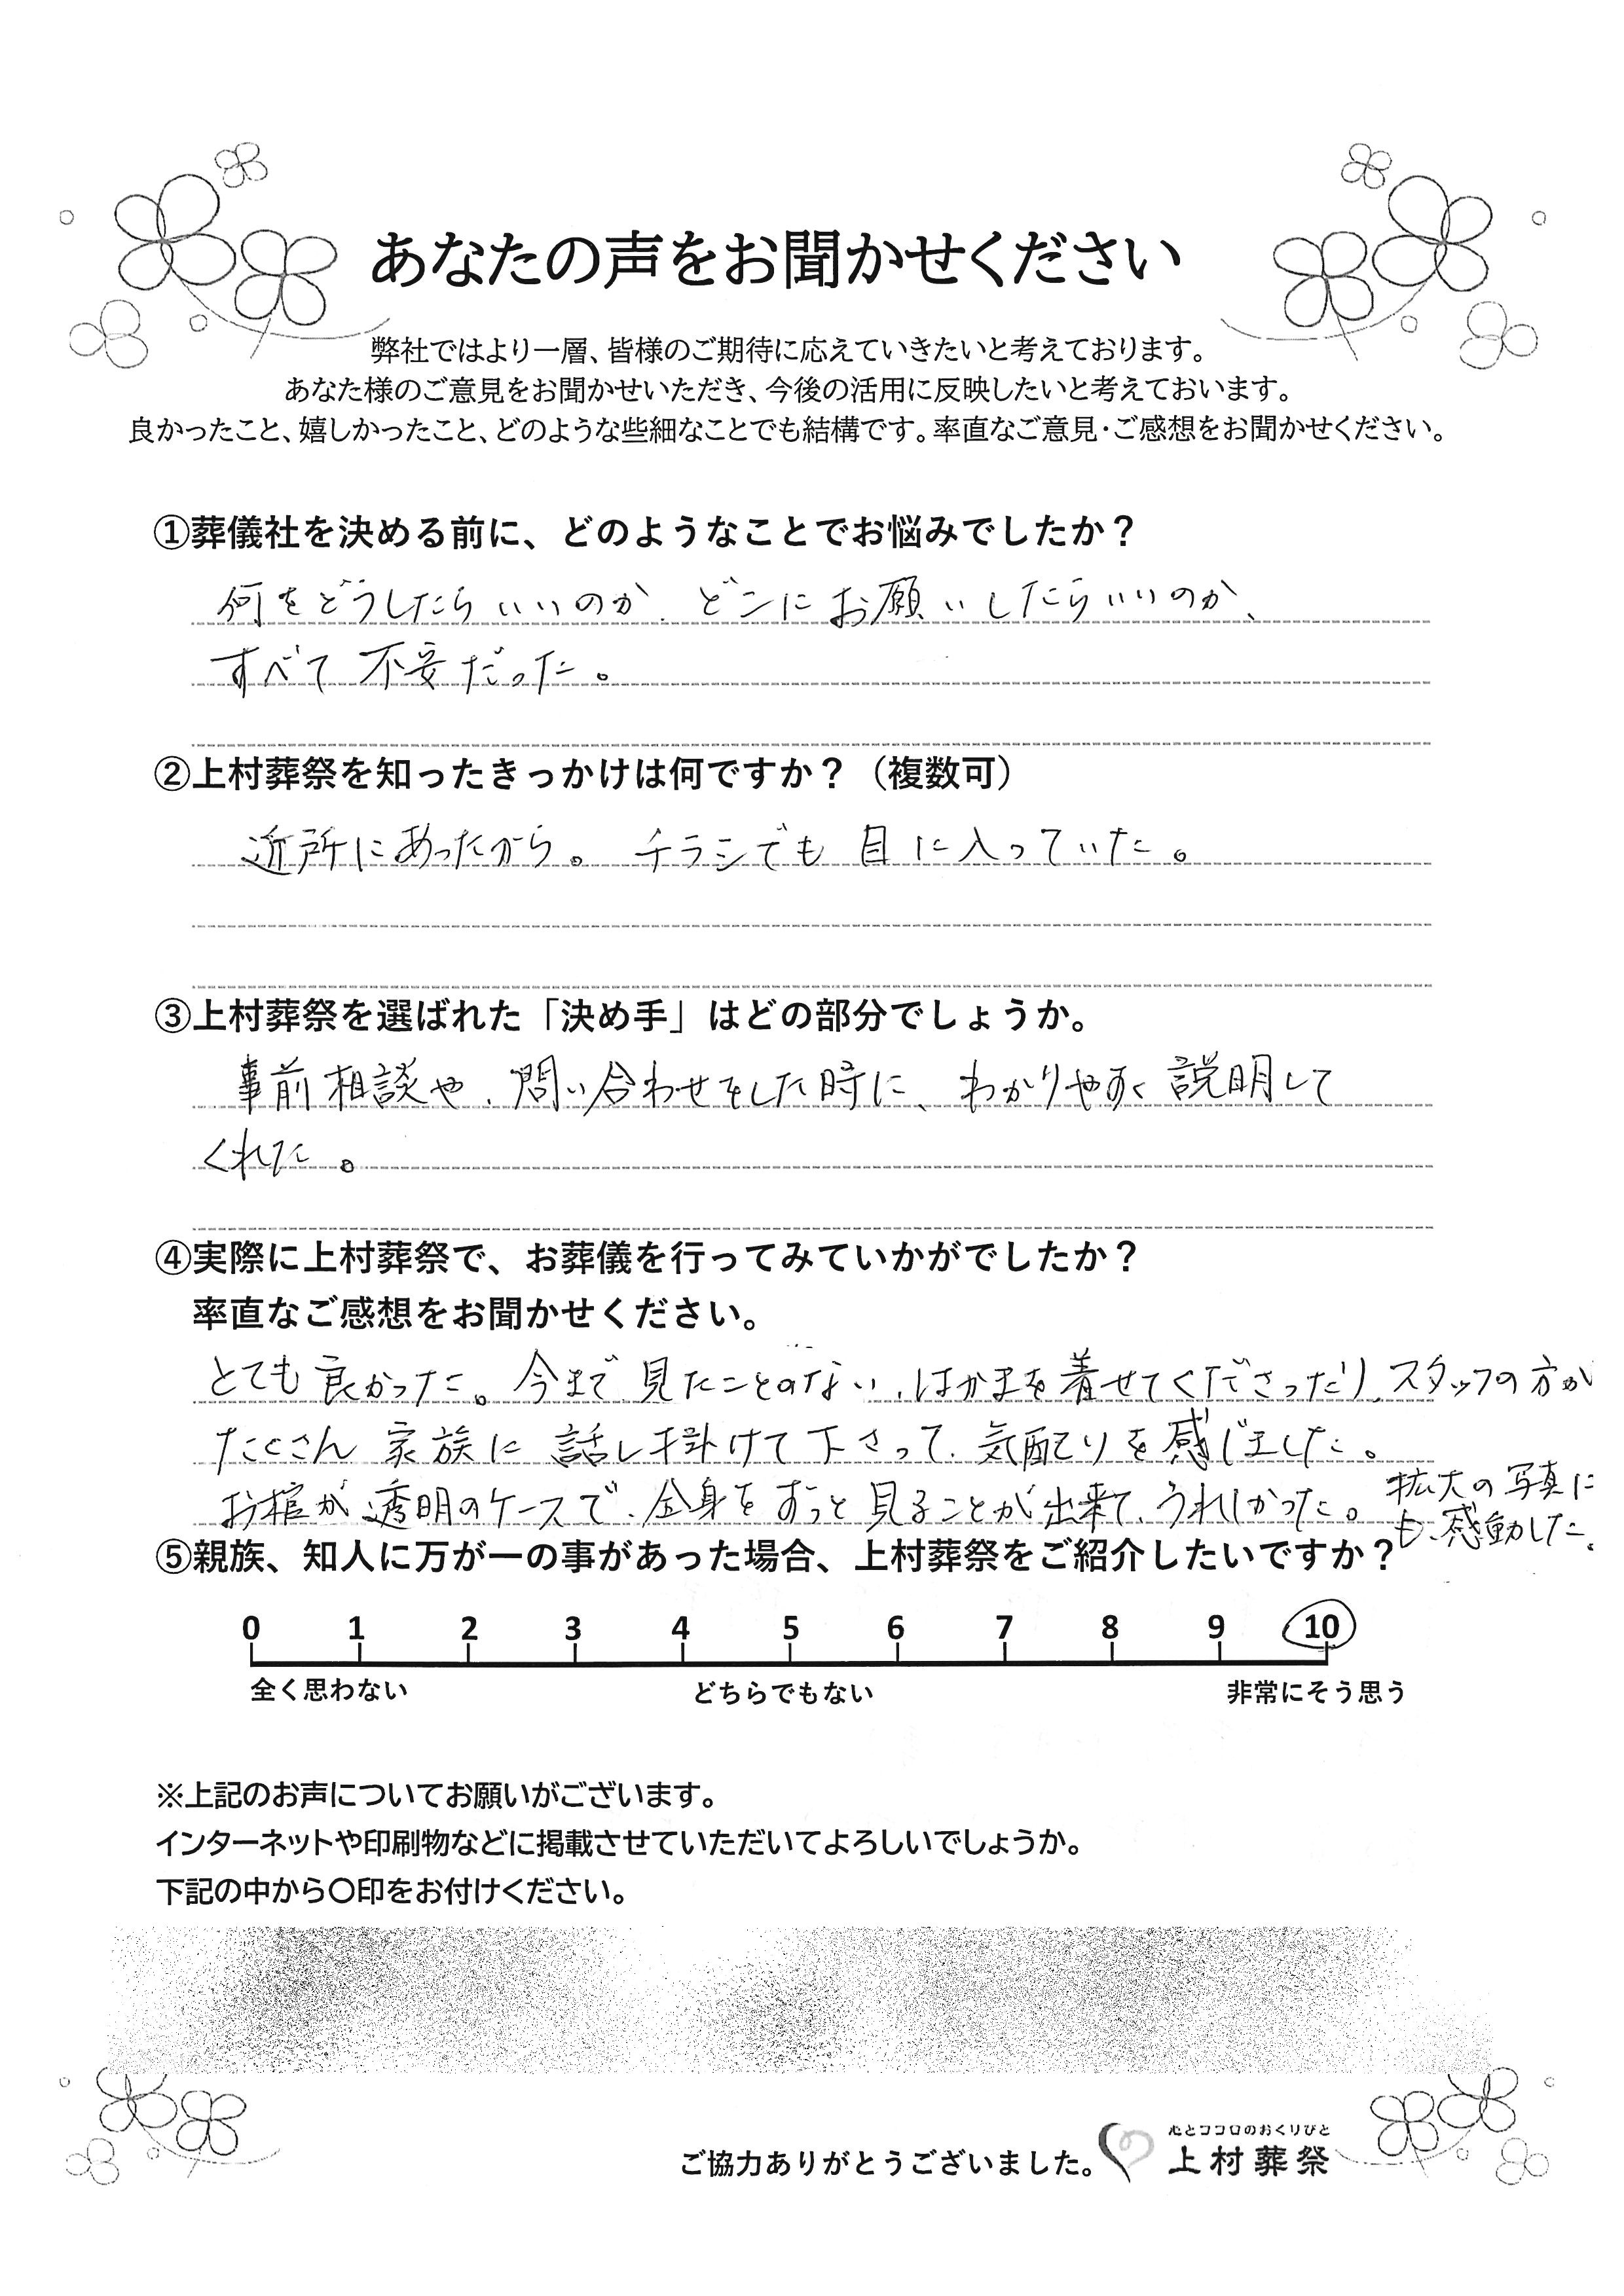 あなたの声をお聞かせください
弊社ではより一層、皆様のご期待に応えていきたいと考えております。
あなた様のご意見をお聞かせいただき、今後の活用に反映したいと考えておいます。
良かったこと、嬉しかったこと、どのような些細なことでも結構です。率直なご意見・ご感想をお聞かせください。
①葬儀社を決める前に、どのようなことでお悩みでしたか？
何をどうしたらいいのか、どこにお願いしたらいいのか、
すべて不安だった。
②上村葬祭を知ったきっかけは何ですか？（複数可）
近所にあったから。チラシでも目に入っていた。
③上村葬祭を選ばれた「決め手」はどの部分でしょうか。
事前相談や、問い合わせをした時に、わかりやすく説明して
くれた。
④実際に上村葬祭で、お葬儀を行ってみていかがでしたか？
率直なご感想をお聞かせください。
とても良かった。今まで見たことのない、はかまを着せてくださったり、スタッフの方が
たくさん家族に話し掛けて下さって、気配りを感じました。
お棺が透明のケースで、全身をずっと見ることが出来て、うれしかった。拡大の写真に
も、感動した。
⑤親族、知人に万が一の事があった場合、上村葬祭をご紹介したいですか？
0 1 2 3 4 5 6 7 8 9 10
全く思わない どちらでもない 非常にそう思う
※上記のお声についてお願いがございます。
インターネットや印刷物などに掲載させていただいてよろしいでしょうか。
下記の中から〇印をお付けください。
心とココロのおくりびと
ご協力ありがとうございました。上村葬祭